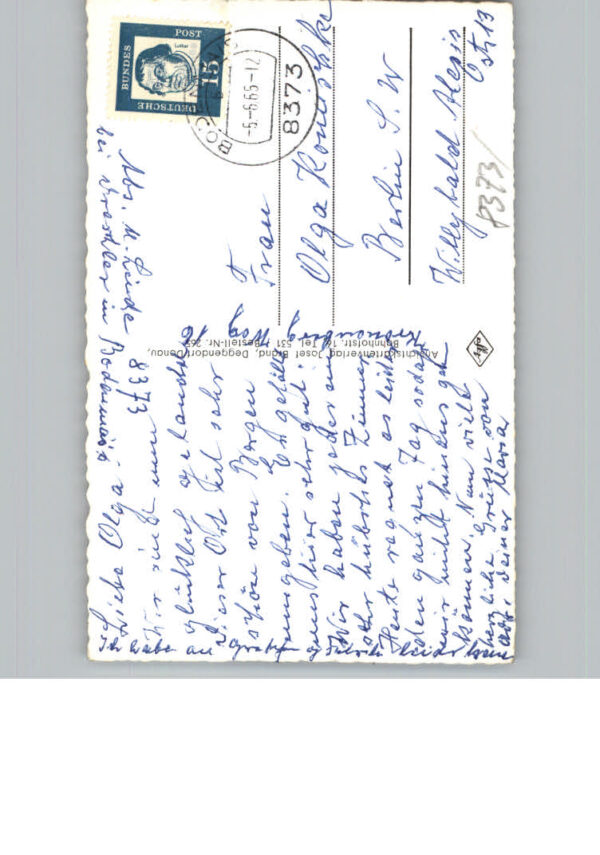 Abs. M. Linde 8373
bei Drexler in Bodenmais
Liebe Olga.
Wir sind nun
glücklich gelandet
Dieser Ort ist sehr
schön von Bergen
umgeben. Es gefällt
uns hier sehr gut.
Wir haben jeder ein
sehr hübsches Zimmer
Heute regnet es leider
den ganzen Tag sodass
wir nicht hinaus gehen
können. Nun viele
herzliche Grüsse von
Deiner Maria
Ich habe an
geschrieben leider keine
Ansichtskartenverlag Josef Brand, Deggendorf/Donau,
Bahnhofstr. 16, Tel. 531 / Bestell-Nr. 265
Agfa
DEUTSCHE
BUNDES
POST
15
Luther
-5-6.65-12
8373
Frau
Olga
Berlin S.W
Willybald Alexis
Str 13
8373/